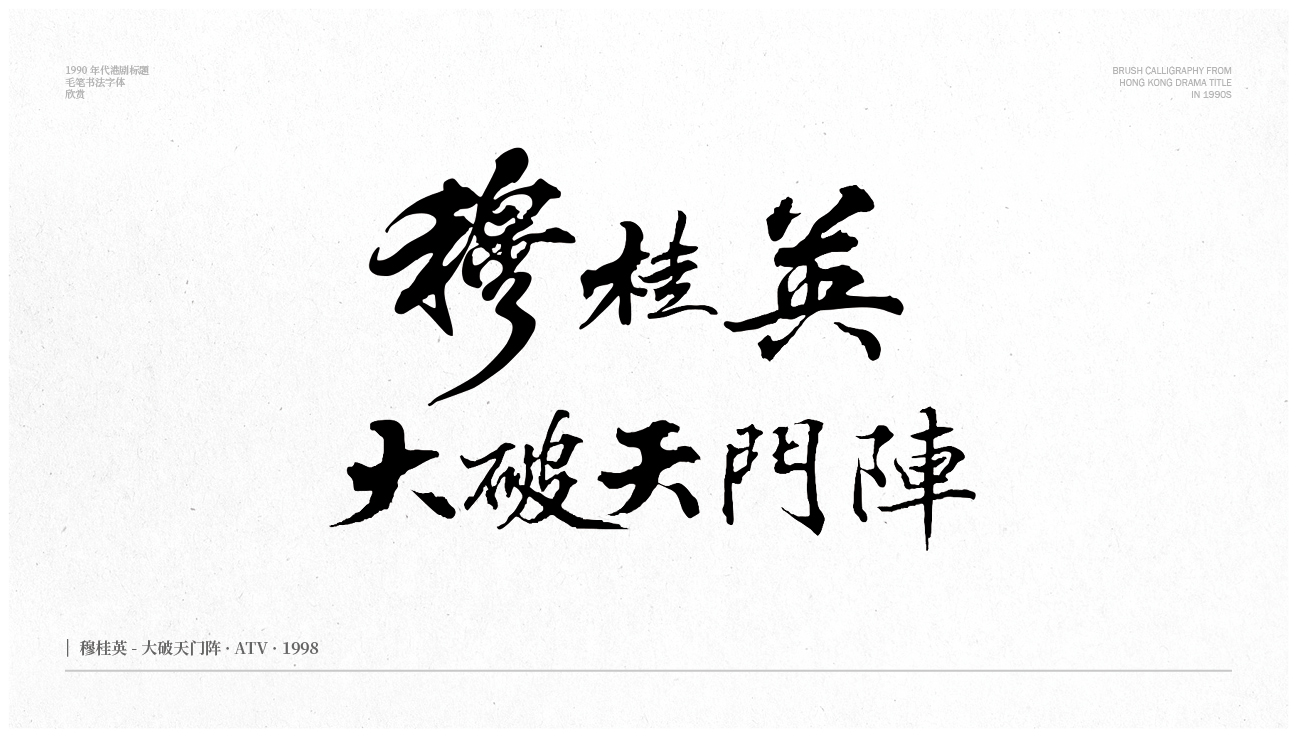 1990 年代港剧标题
毛笔书法字体
欣赏
BRUSH CALLIGRAPHY FROM
HONG KONG DRAMA TITLE
IN 1990S
穆桂英
大破天門陣
穆桂英 - 大破天门阵 · ATV · 1998